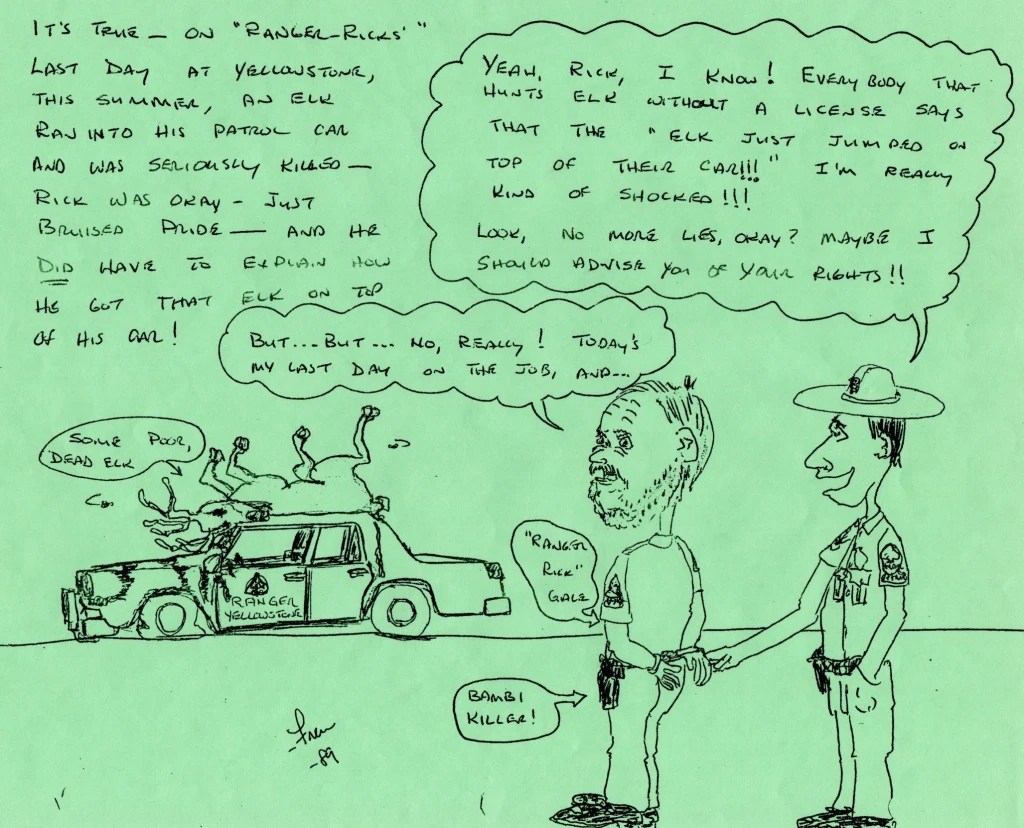 IT'S TRUE — ON "RANGER-RICKS'"
LAST DAY AT YELLOWSTONE,
THIS SUMMER, AN ELK
RAN INTO HIS PATROL CAR
AND WAS SERIOUSLY KILLED —
RICK WAS OKAY - JUST
BRUISED PRIDE — AND HE
DID HAVE TO EXPLAIN HOW
HE GOT THAT ELK ON TOP
OF HIS CAR!
YEAH, RICK, I KNOW! EVERYBODY THAT
HUNTS ELK WITHOUT A LICENSE SAYS
THAT THE "ELK JUST JUMPED ON
TOP OF THEIR CAR!!!" I'M REALLY
KIND OF SHOCKED!!!
LOOK, NO MORE LIES, OKAY? MAYBE I
SHOULD ADVISE YOU OF YOUR RIGHTS!!
BUT... BUT... NO, REALLY! TODAY'S
MY LAST DAY ON THE JOB, AND...
SOME POOR,
DEAD ELK
"RANGER
RICK"
GALE
RANGER
YELLOWSTONE
BAMBI
KILLER!
-89